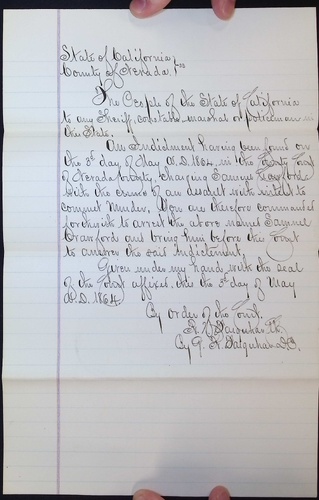 State of California } ss
County of Nevada.
The People of the State of California
to any Sheriff, constable marshal or policeman in
this State.
An Indictment having been found on
the 3d day of May A.D. 1864, in the County Court
of Nevada County, charging Samuel Crawford
with the crime of an assault with intent to
commit Murder. You are therefore commanded
forthwith to arrest the above named Samuel
Crawford and bring him before the Court
to answer the said indictment.
Given under my hand with the seal
of the Court affixed this the 3d day of May
A.D. 1864.
By order of the Court.
Farquhar Clk.
By G. K. Farquhar D.C.